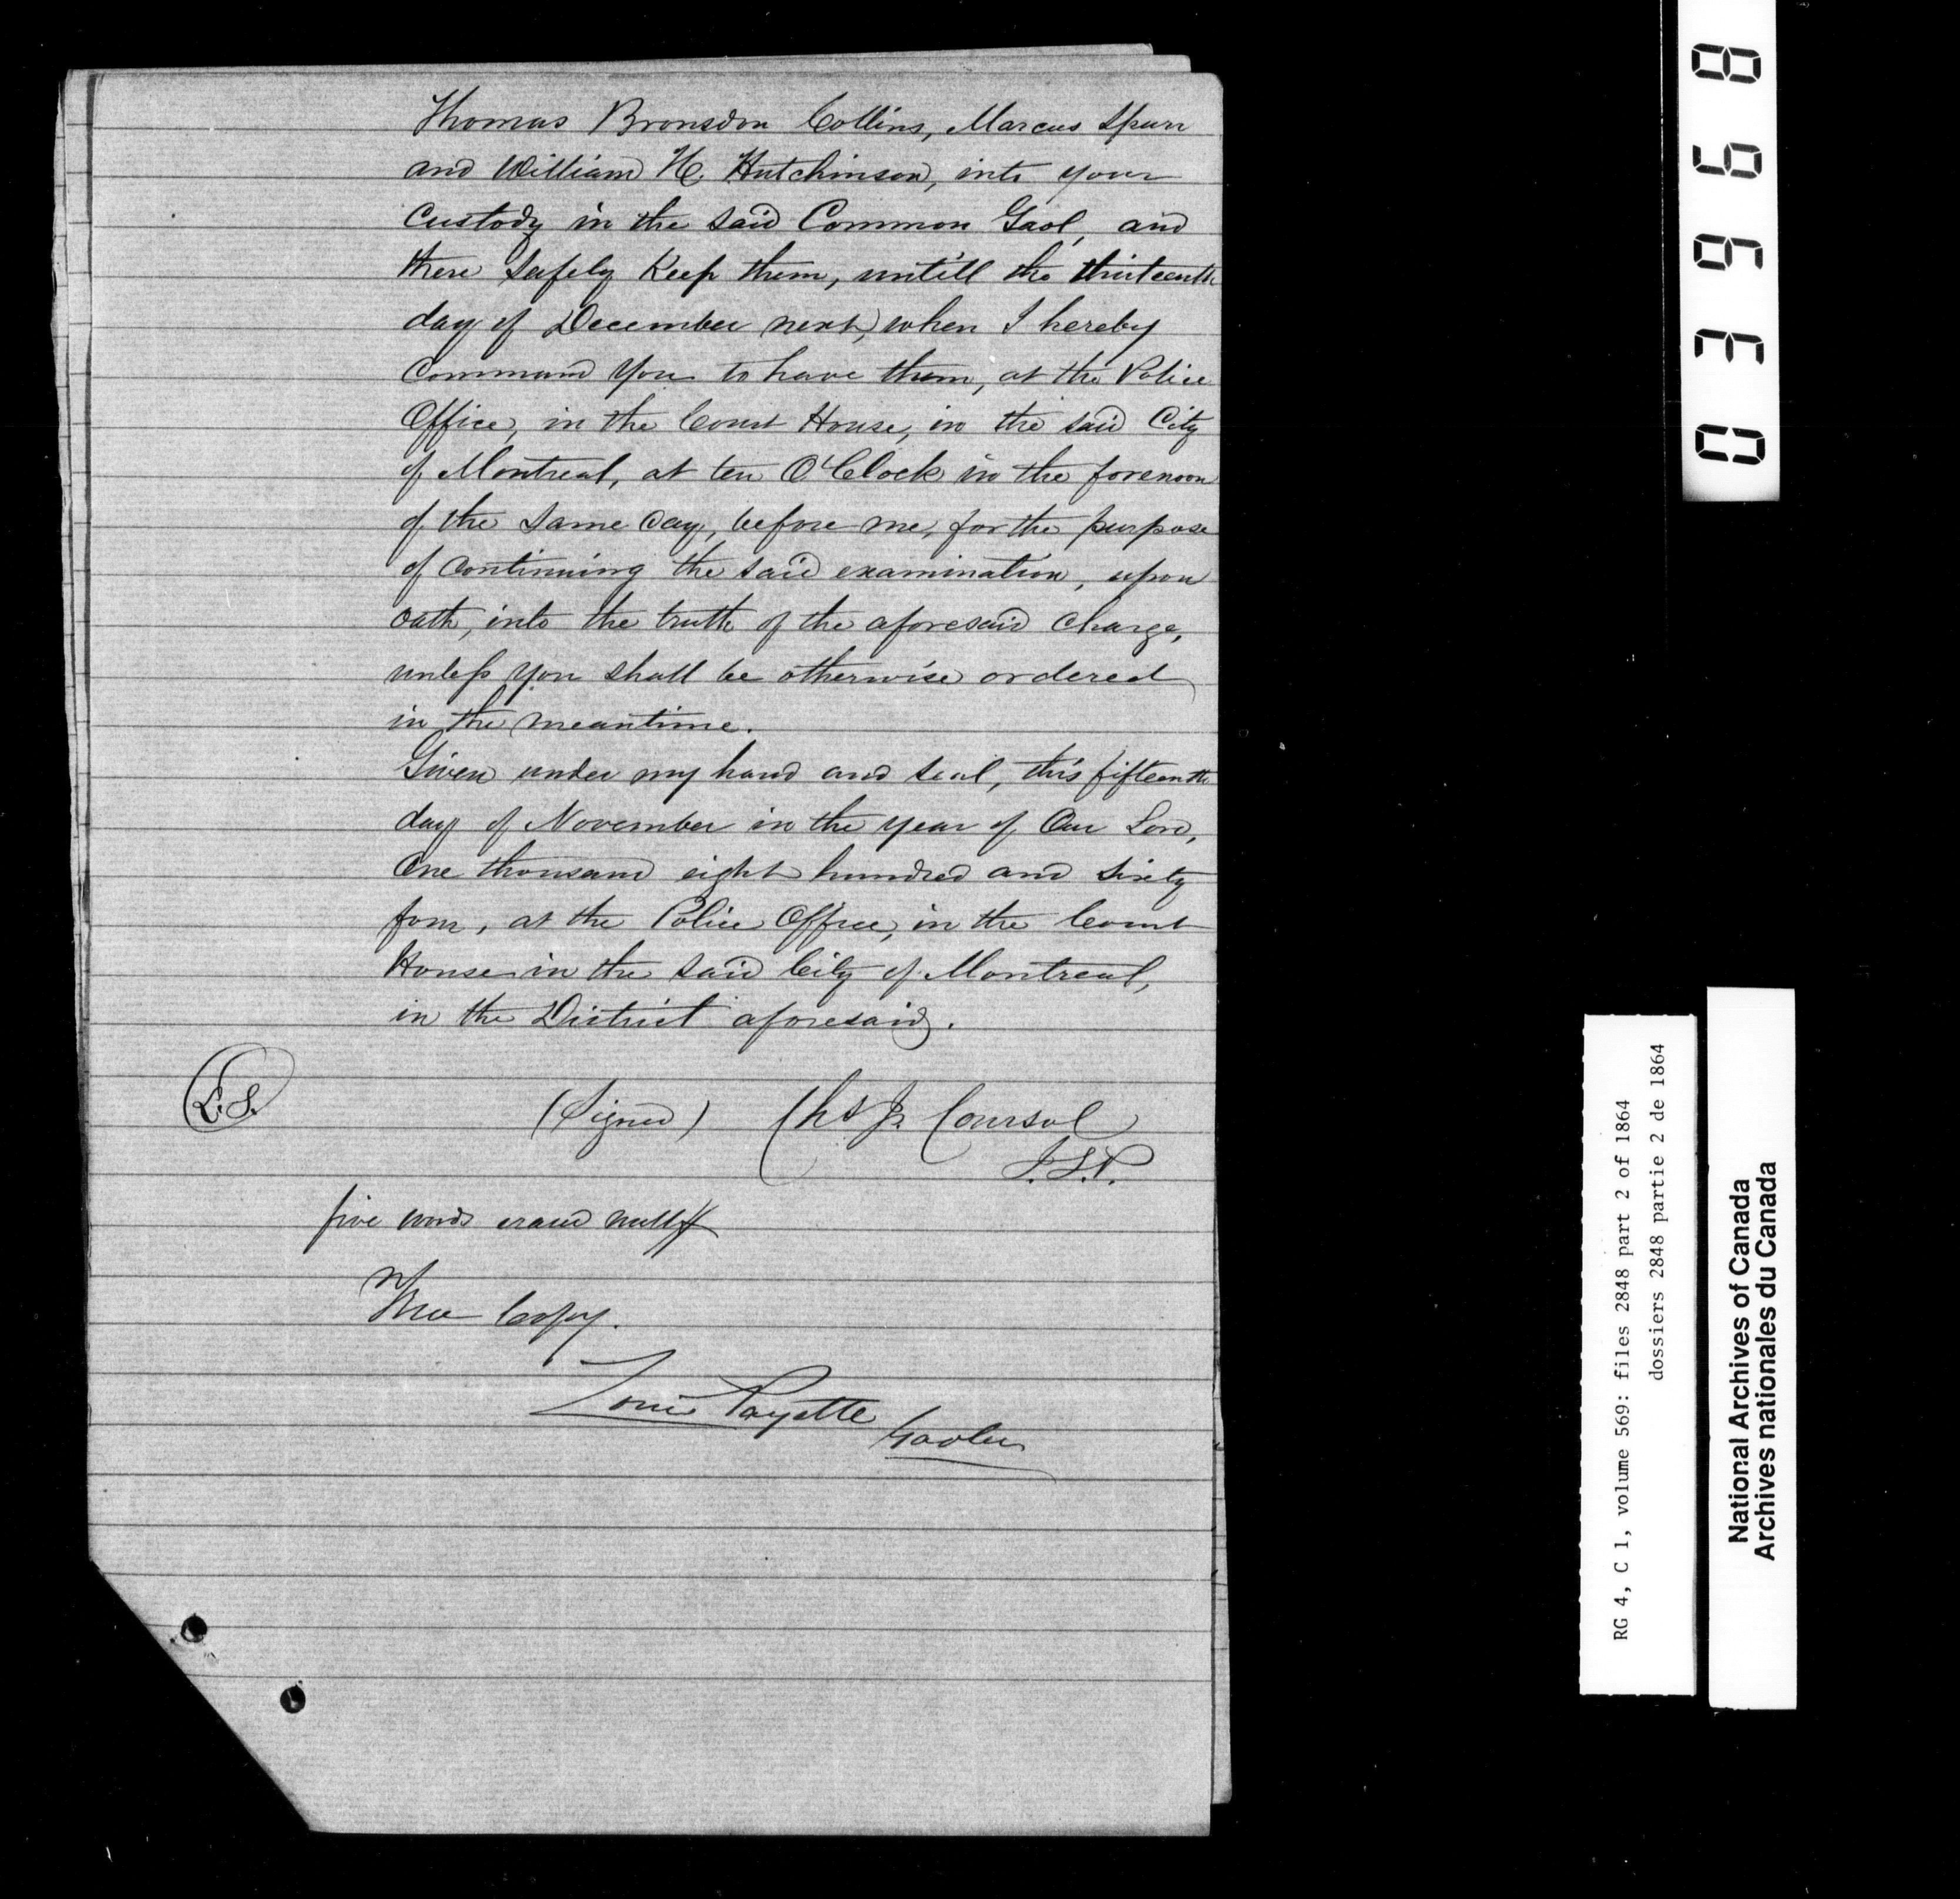 Thomas Bronsdon Collins, Marcus Spurr
and William H. Hutchinson, into your
Custody in the said Common Gaol, and
there safely Keep them, untill the thirteenth
day of December next, when I hereby
Command you to have them, at the Police
Office, in the Court House, in the said City
of Montreal, at ten O'Clock in the forenoon
of the same day, before me, for the purpose
of Continuing the said examination, upon
oath, into the truth of the aforesaid Charge,
unless you shall be otherwise ordered
in the meantime.
Given under my hand and seal, this fifteenth
day of November in the year of Our Lord,
One thousand eight hundred and sixty
four, at the Police Office, in the Court
House in the said City of Montreal,
in the District aforesaid.
L.S.
(Signed) Chs J. Coursol
J.S.P.
five words erased null
True Copy.
Louis Payette
Gaoler
03968
RG 4, C 1, volume 569: files 2848 part 2 of 1864
dossiers 2848 partie 2 de 1864
National Archives of Canada
Archives nationales du Canada